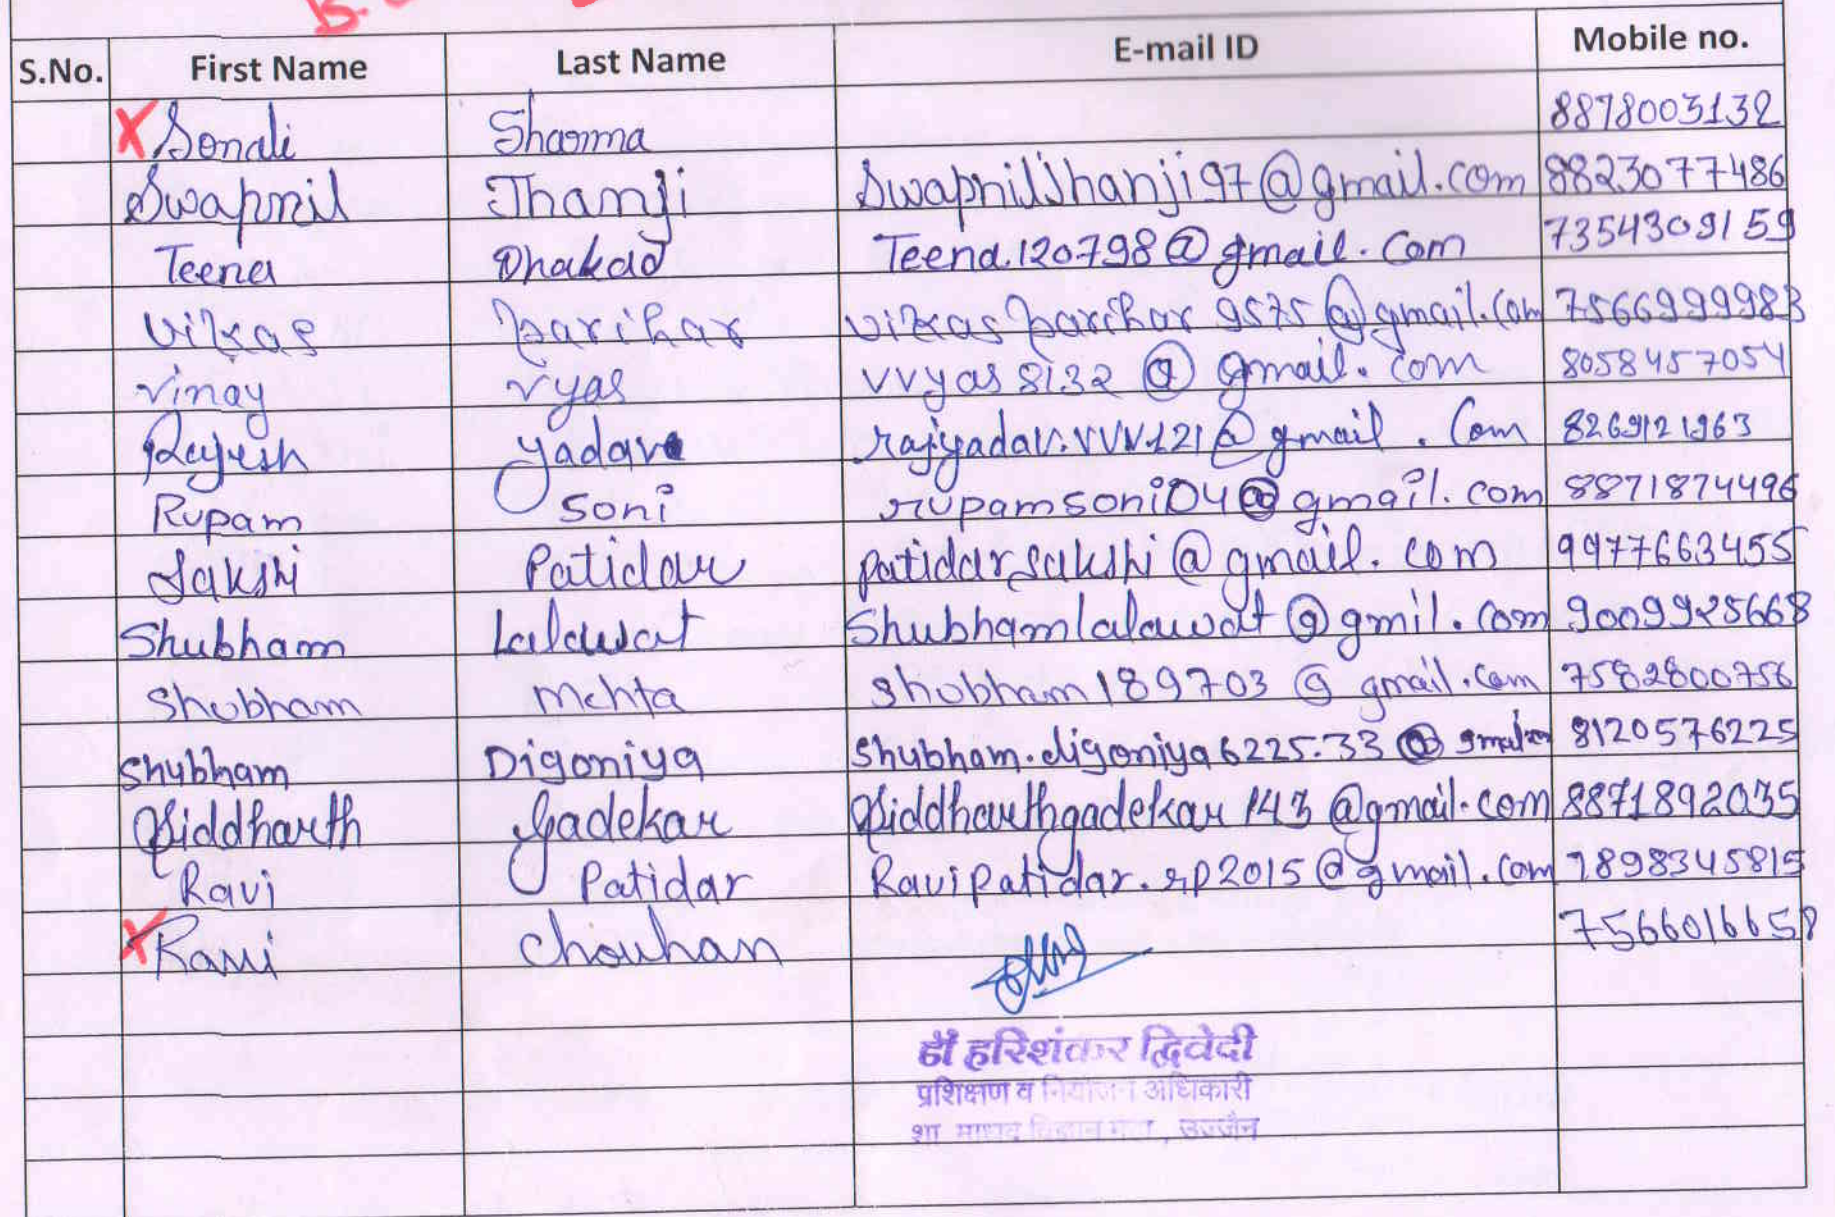 S.No. First Name Last Name E-mail ID Mobile no.
X Sonali Sharma 8878003132
Swapnil Jhanji Swapniljhanji97@gmail.com 8823077486
Teena Dhakad Teena.120798@gmail.com 7354309159
Vikas Parihar vikasparihar9575@gmail.com 7566999983
Vinay Vyas vvyas8132@gmail.com 8058457054
Rajesh Yadav rajyadav.vvv121@gmail.com 8269121963
Rupam Soni rupamsoni04@gmail.com 8871874496
Sakshi Patidar patidarsakshi@gmail.com 9977663455
Shubham Lalawat Shubhamlalawat@gmil.com 9009925668
Shubham Mehta Shubham189703@gmail.com 7582800756
Shubham Digoniya Shubham.digoniya6225.33@ 8120576225
Siddharth Gadekar Siddharthgadekar143@gmail.com 8871892035
Ravi Patidar Ravipatidar.rp2015@gmail.com 7898345815
X Ravi Chouhan 7566016658
डॉ हरिशंकर द्विवेदी
प्रशिक्षण व नियोजन अधिकारी
शा माधव विज्ञान महा., उज्जैन